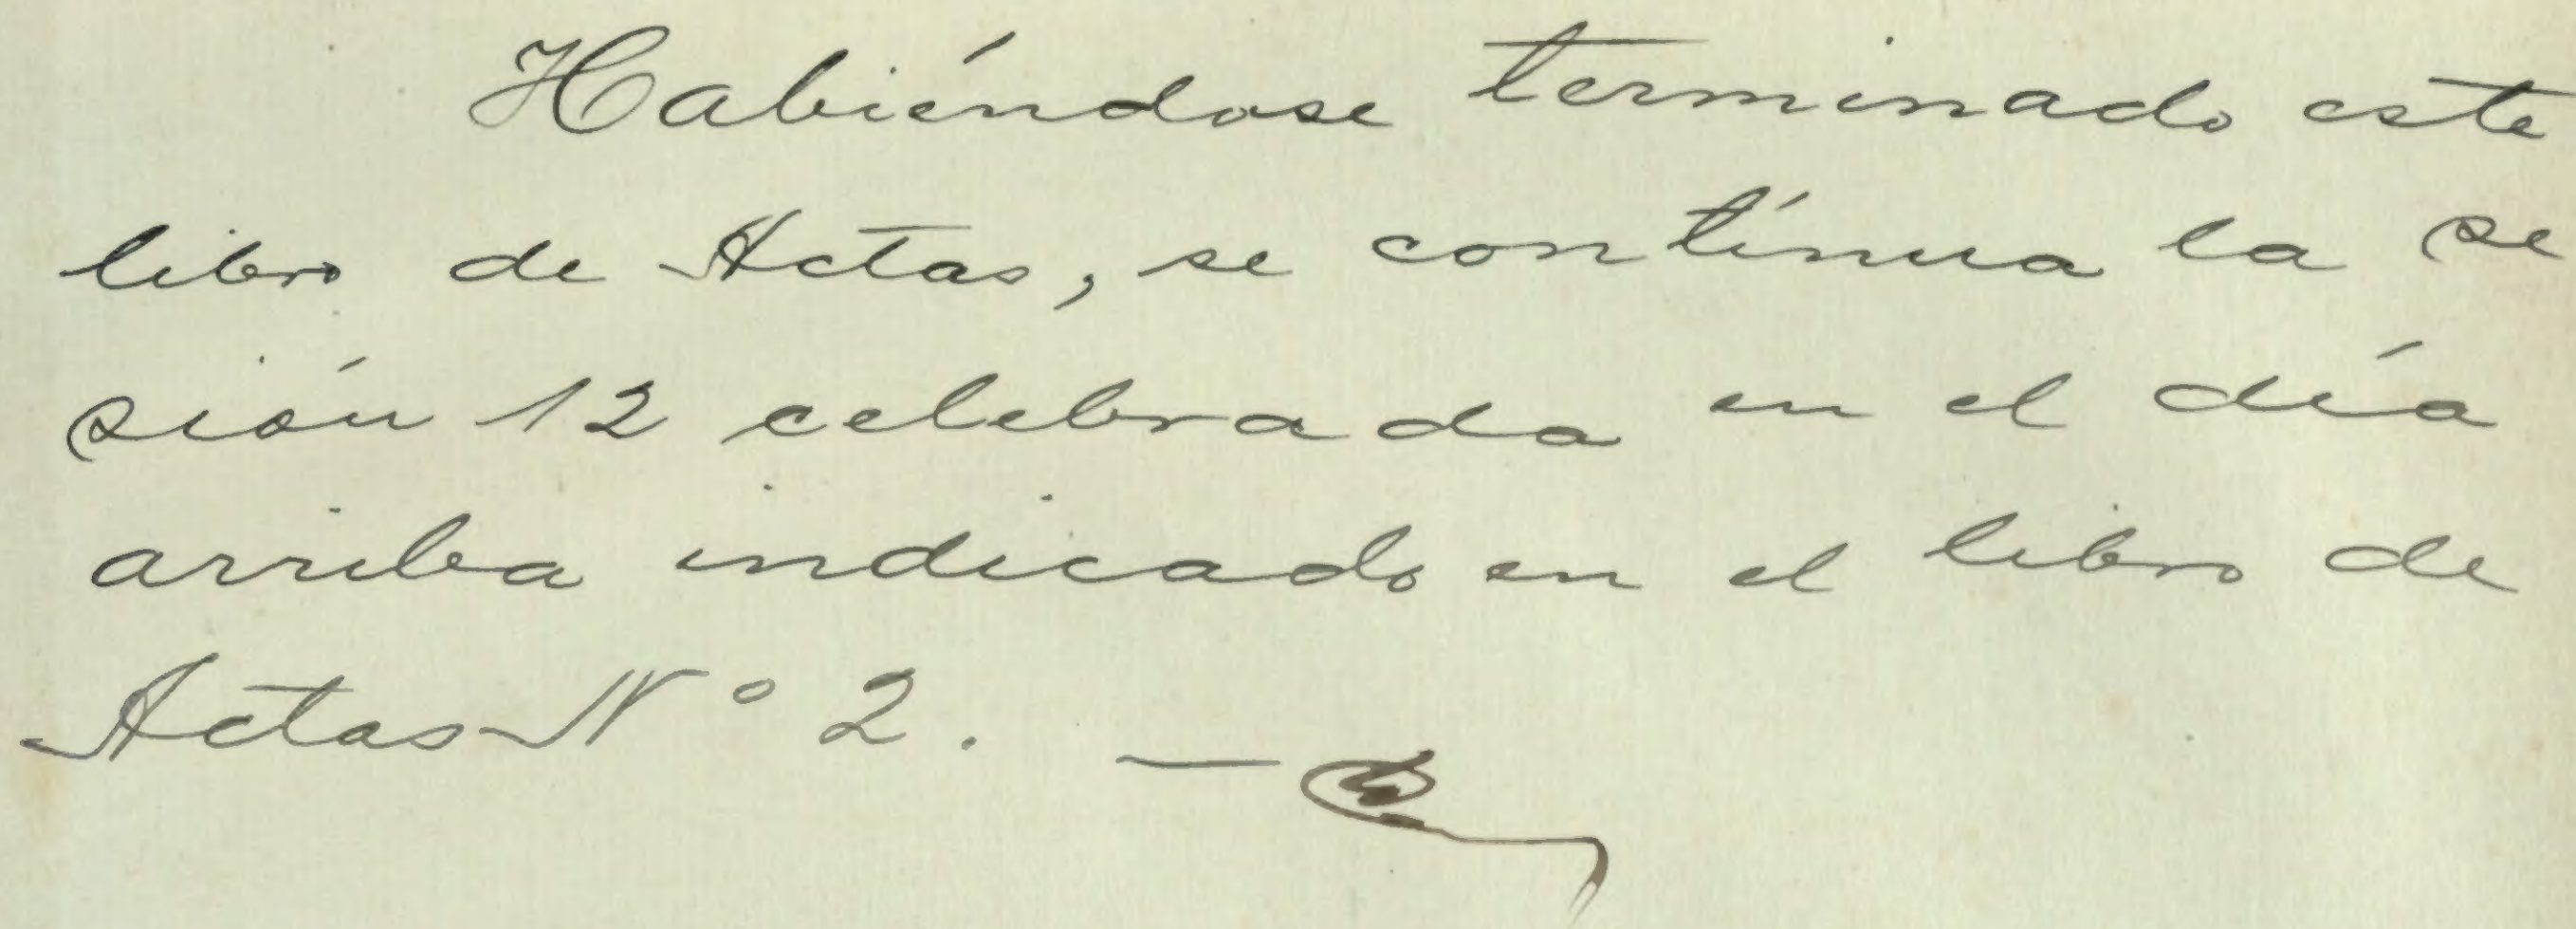 Habiéndose terminado este
libro de Actas, se contínua la se
sión 12 celebrada en el día
arriba indicado en el libro de
Actas Nº 2. —